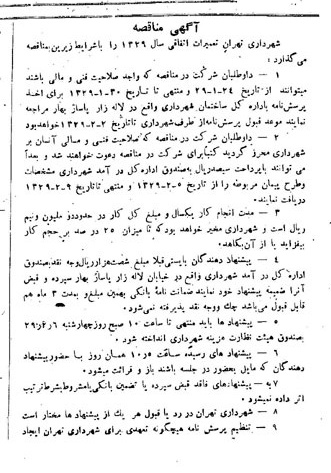 آگهی مناقصه
شهرداری تهران تعمیرات اتفاقی سال ۱۳۲۹ را با شرایط زیرین مناقصه
میگذارد :
۱ — داوطلبان شرکت در مناقصه که واجد صلاحیت فنی و مالی باشند
میتوانند از تاریخ ۲۴-۱-۲۹ و منتهی تا تاریخ ۳۰-۱-۱۳۲۹ برای اخذ
پرسش‌نامه باداره کل ساختمان شهرداری واقع در لاله زار پاساژ بهار مراجعه
نمایند موعد قبول پرسش‌نامه از طرف شهرداری تا تاریخ ۲-۲-۱۳۲۹ خواهد بود
۲ — داوطلبان شرکت در مناقصه که صلاحیت فنی و مالی آنسان بر
شهرداری محرز گردید کتبا برای شرکت در مناقصه دعوت خواهند شد و بعداً
می توانند با پرداخت سیصد ریال به صندوق اداره کل در آمد شهرداری مشخصات
وطرح پیمان مربوطه را از تاریخ ۵-۲-۱۳۲۹ و منتهی تا تاریخ ۹-۲-۱۳۲۹
دریافت نمایند.
۳ — مدت انجام کار یکسال و مبلغ کل کار در حدود دو ملیون و نیم
ریال است و شهرداری مخیر خواهد بود که تا میزان ۲۵ در صد بر حجم کار
بیفزاید یا از آن بکاهد.
۴ — پیشنهاد دهندگان بایستی قبلا مبلغ شصت هزار ریال وجه نقد بصندوق
اداره کل در آمد شهرداری واقع در خیابان لاله زار پاساژ بهار سپرده و قبض
آنرا ضمیمه پیشنهاد خود نمایند ضمانت نامهٔ بانکی بهمین مبلغ و بمدت ۳ ماه هم
قابل قبول می‌باشد چك ووجه نقد پذیرفته نمی‌شود.
۵ — پیشنهاد ها باید منتهی تا ساعت ۱۰ صبح روز چهارشنبه
بصندوق هیئت نظارت هزینه شهرداری انداخته شود .
۶ — پیشنهاد های رسیده ساعت ۱۰ر۵ همان روز با حضور پیشنهاد
دهندگان که مایل بحضور در جلسه باشند باز و قرائت میشود.
۷ — به پیشنهادهای فاقد قبض سپرده یا تضمین بانکی یا مشروط بشرط ترتیب
اثر داده نمیشود.
۸ — شهرداری تهران در رد یا قبول هر یك از پیشنهاد ها مختار است
۹ — تنظیم پرسش نامه هیچگونه تعهدی برای شهرداری تهران ایجاد